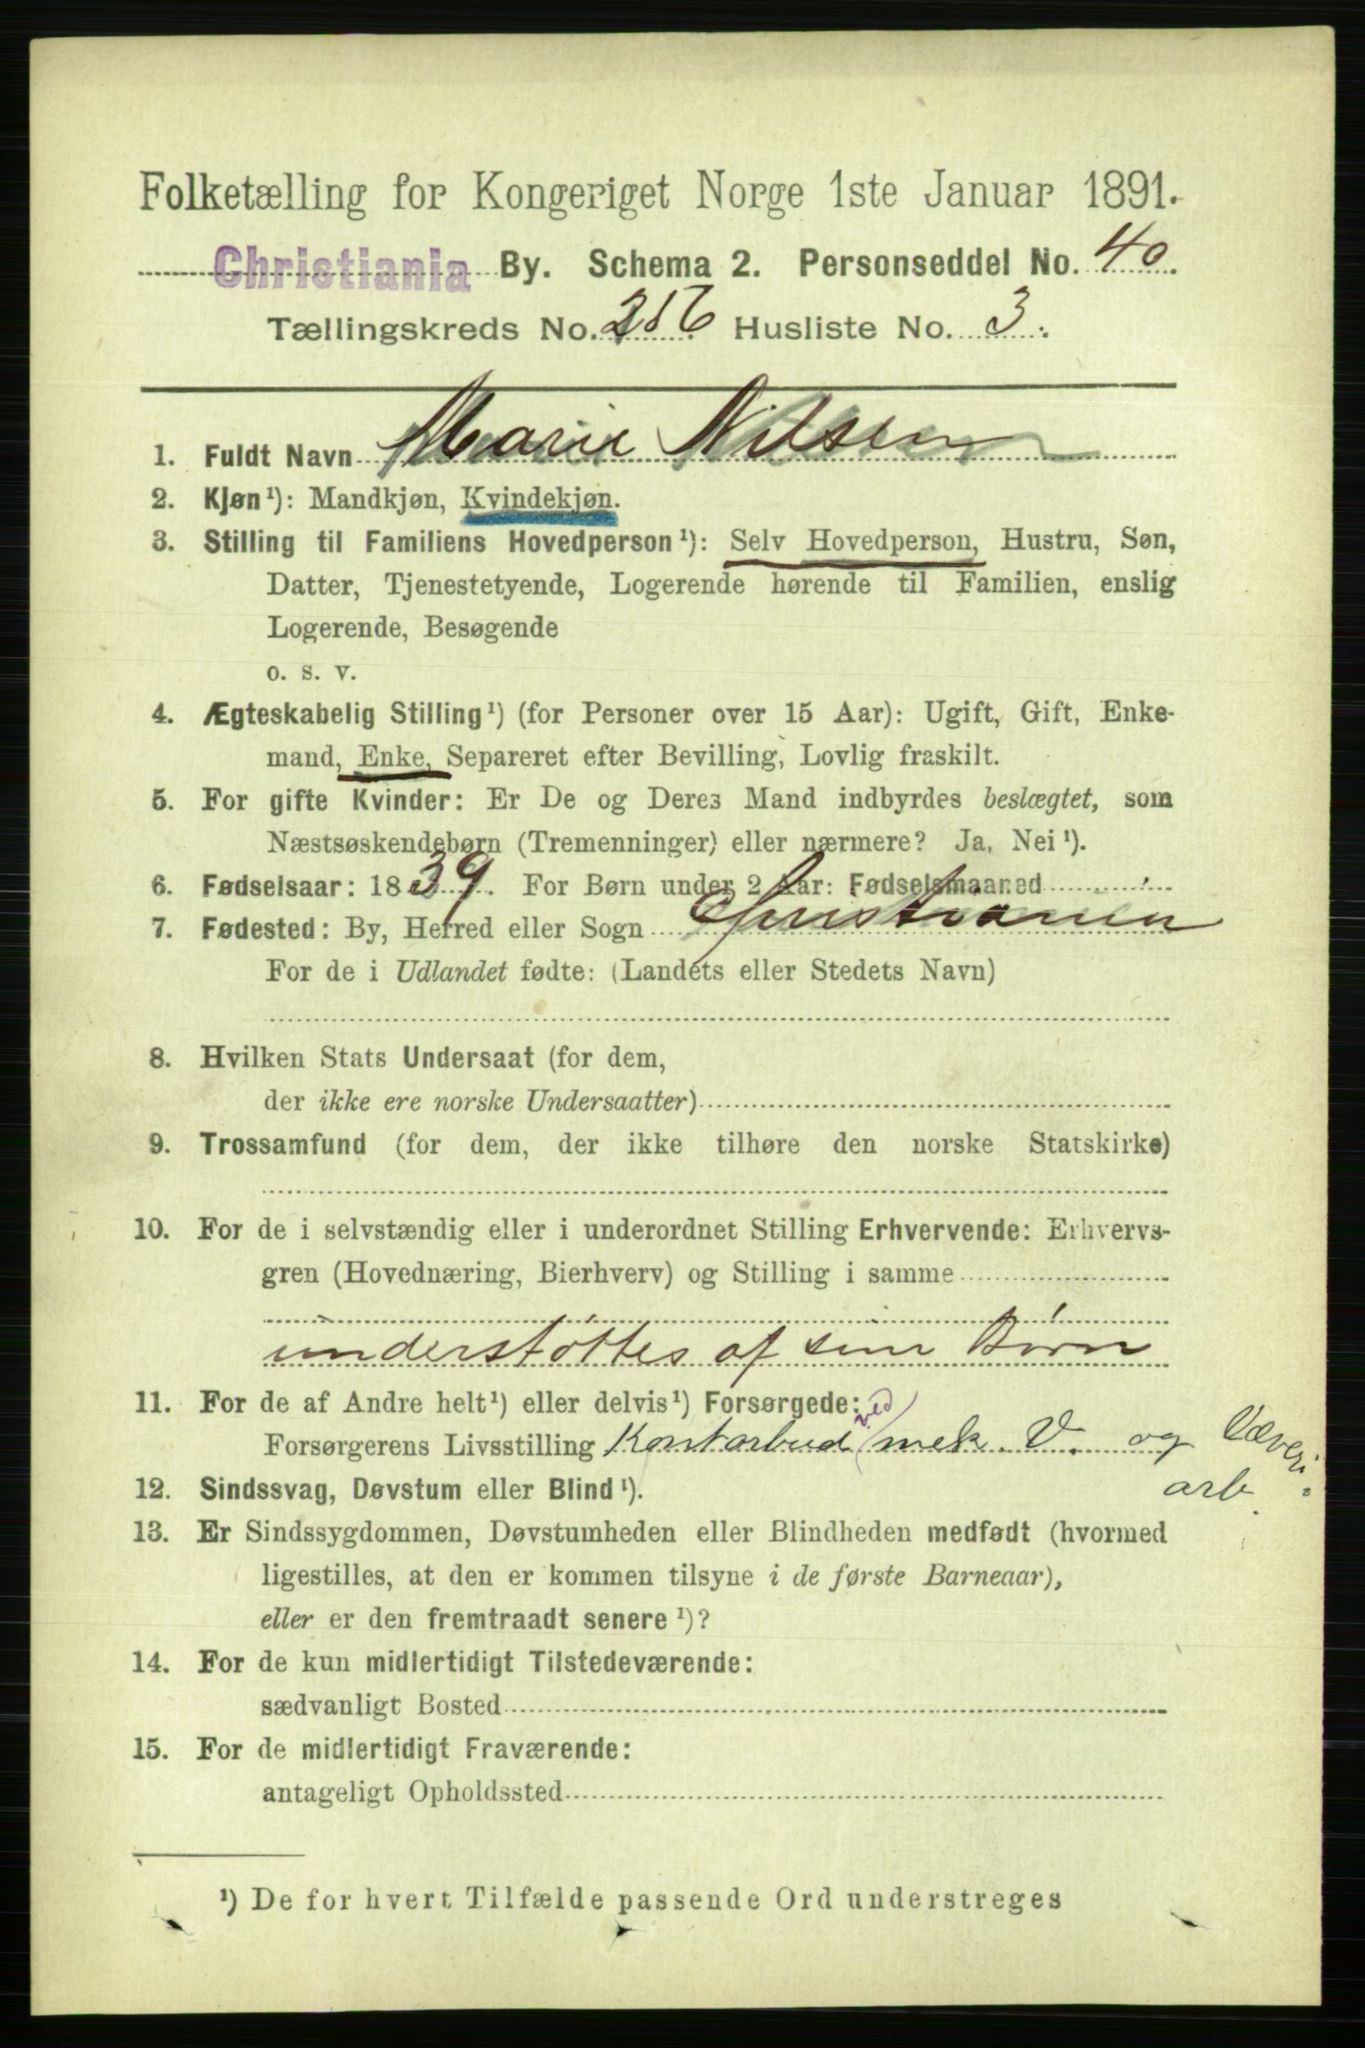 Folketælling for Kongeriget Norge 1ste Januar 1891.
Christiania By. Schema 2. Personseddel No. 40.
Tællingskreds No. 216 Husliste No. 3.
1. Fuldt Navn Marie Nilsen
2. Kjøn¹): Mandkjøn, Kvindekjøn.
3. Stilling til Familiens Hovedperson¹): Selv Hovedperson, Hustru, Søn,
Datter, Tjenestetyende, Logerende hørende til Familien, enslig
Logerende, Besøgende
o. s. v.
4. Ægteskabelig Stilling¹) (for Personer over 15 Aar): Ugift, Gift, Enke-
mand, Enke, Separeret efter Bevilling, Lovlig fraskilt.
5. For gifte Kvinder: Er De og Deres Mand indbyrdes beslægtet, som
Næstsøskendebørn (Tremenninger) eller nærmere? Ja, Nei¹).
6. Fødselsaar: 1839. For Børn under 2 Aar: Fødselsmaaned
7. Fødested: By, Herred eller Sogn Christiania
For de i Udlandet fødte: (Landets eller Stedets Navn)
8. Hvilken Stats Undersaat (for dem,
der ikke ere norske Undersaatter)
9. Trossamfund (for dem, der ikke tilhøre den norske Statskirke)
10. For de i selvstændig eller i underordnet Stilling Erhvervende: Erhvervs-
gren (Hovednæring, Bierhverv) og Stilling i samme
understøttes af sine Børn
11. For de af Andre helt¹) eller delvis¹) Forsørgede:
Forsørgerens Livsstilling Kontorbud ved mek. V. og Væveri-
arb.
12. Sindssvag, Døvstum eller Blind¹).
13. Er Sindssygdommen, Døvstumheden eller Blindheden medfødt (hvormed
ligestilles, at den er kommen tilsyne i de første Barneaar),
eller er den fremtraadt senere¹)?
14. For de kun midlertidigt Tilstedeværende:
sædvanligt Bosted
15. For de midlertidigt Fraværende:
antageligt Opholdssted
¹) De for hvert Tilfælde passende Ord understreges